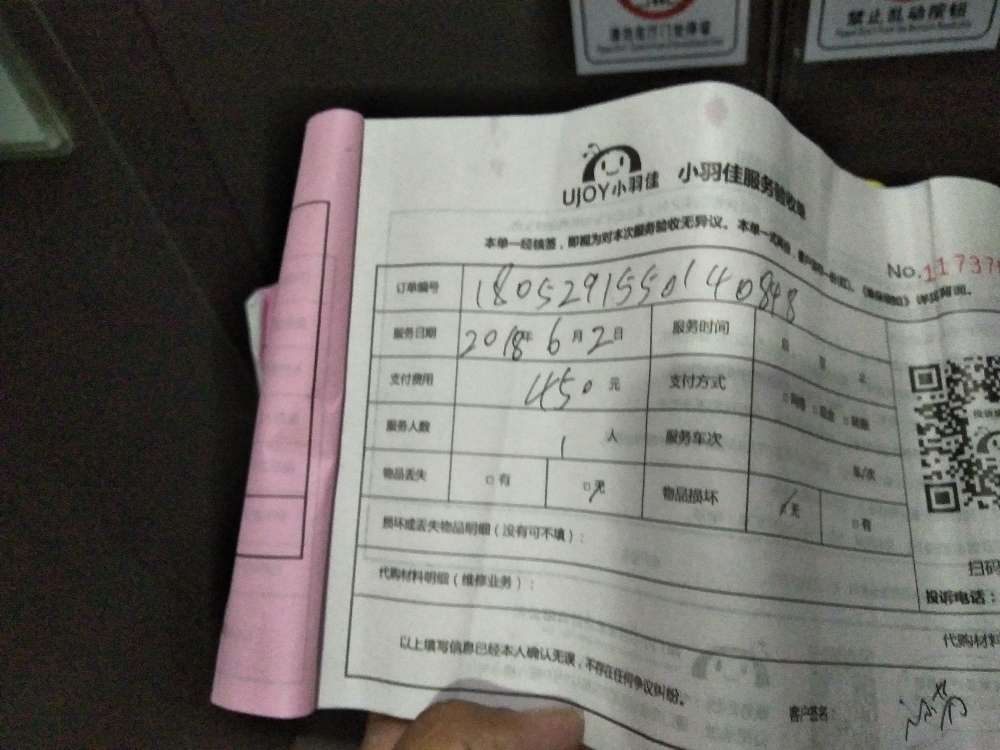 禁止乱动按钮
UJOY小羽佳 小羽佳服务验收单
本单一经核签，即视为对本次服务验收无异议。本单一式两份，
No.11737
订单编号 180529155014 0848
服务日期 2018年6月2日 服务时间
支付费用 450元 支付方式
服务人数 1人 服务车次 车/次
物品丢失 □有 □无 物品损坏 □无 □有
损坏或丢失物品明细（没有可不填）：
扫码
代购材料明细（维修业务）：
投诉电话：
代购材料
以上填写信息已经本人确认无误，不存在任何争议纠纷。
客户签名：